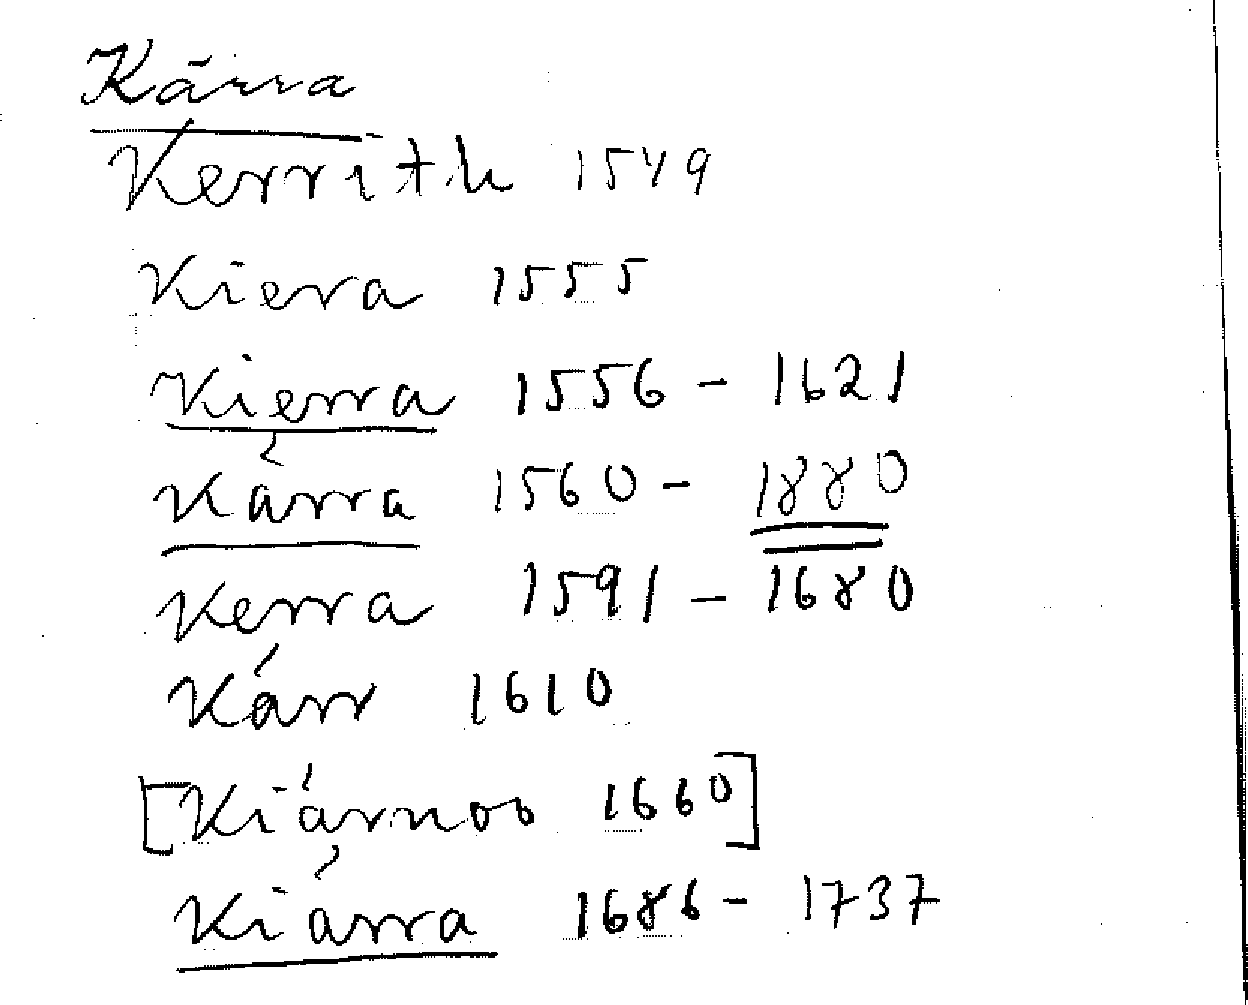 Kärra
Kerrith 1549
Kiera 1555
Kierra 1556 - 1621
Kárra 1560 - 1880
Kerra 1591 - 1680
Kárr 1610
[Kiárnoo 1660]
Kiárra 1686 - 1737